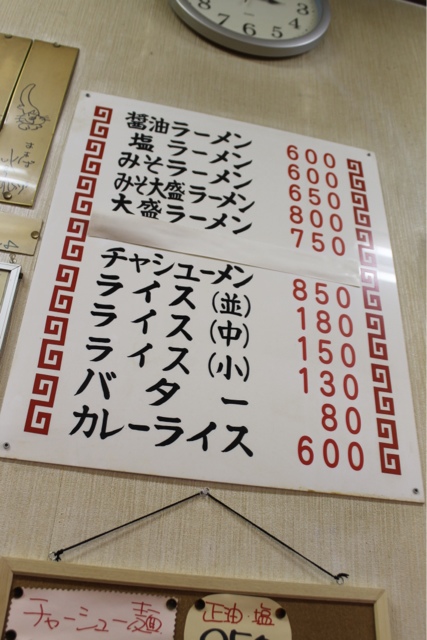 醤油ラーメン 600
塩ラーメン 600
みそラーメン 650
みそ大盛ラーメン 800
大盛ラーメン 750
チャシューメン 850
ライス (並) 180
ライス (中) 150
ライス (小) 130
バター 80
カレーライス 600
チャーシュー麺
正油・塩